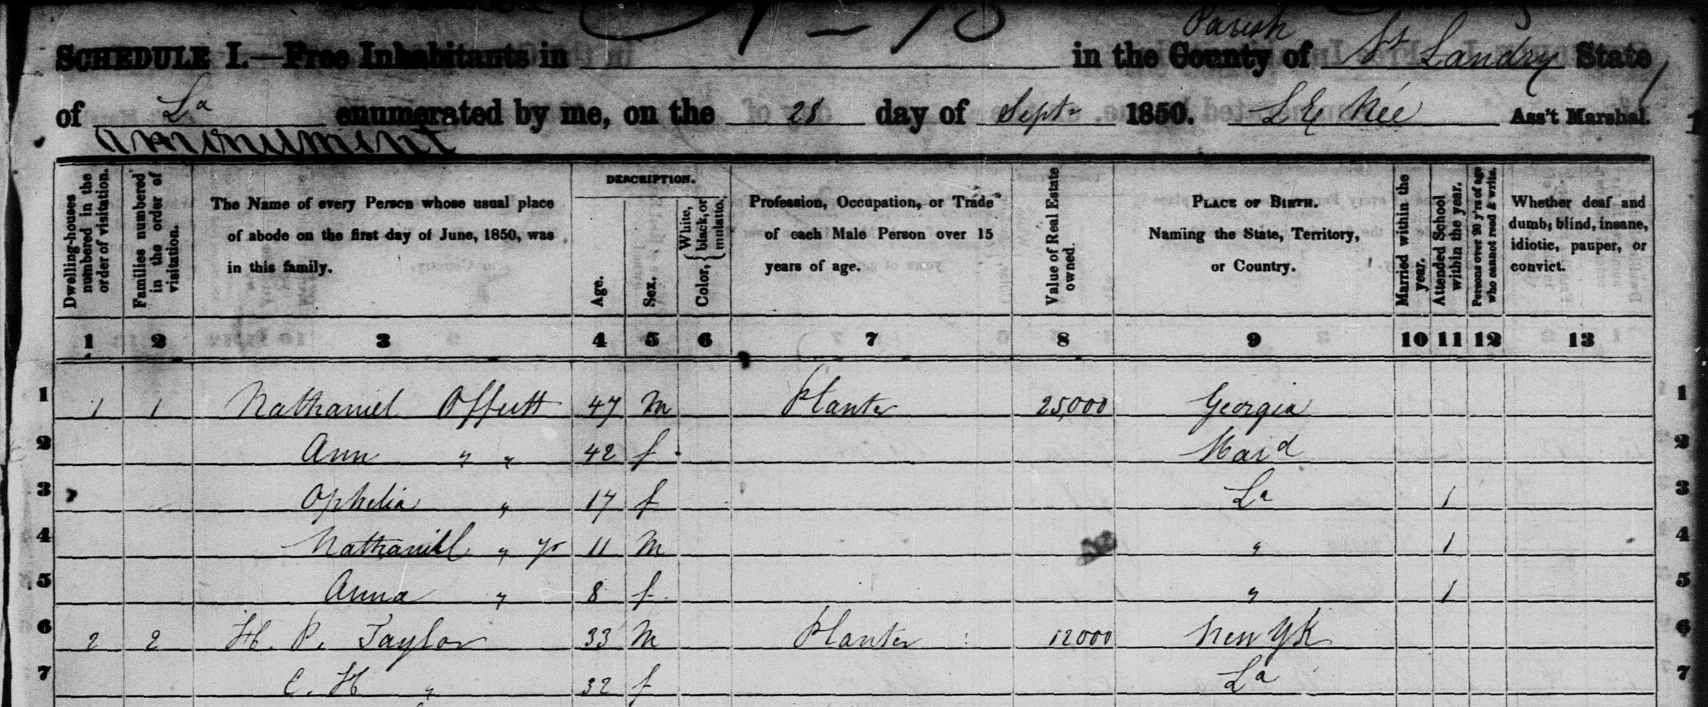 SCHEDULE I.—Free Inhabitants in in the County Parish of St Landry State
of La enumerated by me, on the 28 day of Sept 1850. Ass't Marshal.
Dwelling-houses numbered in the order of visitation.
Families numbered in the order of visitation.
The Name of every Person whose usual place of abode on the first day of June, 1850, was in this family.
DESCRIPTION.
Age.
Sex.
Color, { White, black, or mulatto.
Profession, Occupation, or Trade of each Male Person over 15 years of age.
Value of Real Estate owned.
PLACE OF BIRTH. Naming the State, Territory, or Country.
Married within the year.
Attended School within the year.
Persons over 20 y'rs of age who cannot read & write.
Whether deaf and dumb, blind, insane, idiotic, pauper, or convict.
1 2 3 4 5 6 7 8 9 10 11 12 13
1 1 1 Nathaniel Offutt 47 m Planter 25,000 Georgia 1
2 Ann " " 42 f Mard 2
3 Ophelia " 17 f La 1 3
4 Nathaniel " Jr 11 m " 1 4
5 Anna " 8 f " 1 5
6 2 2 H. P. Taylor 33 m Planter 12000 New Yk 6
7 C. H " 32 f La 7